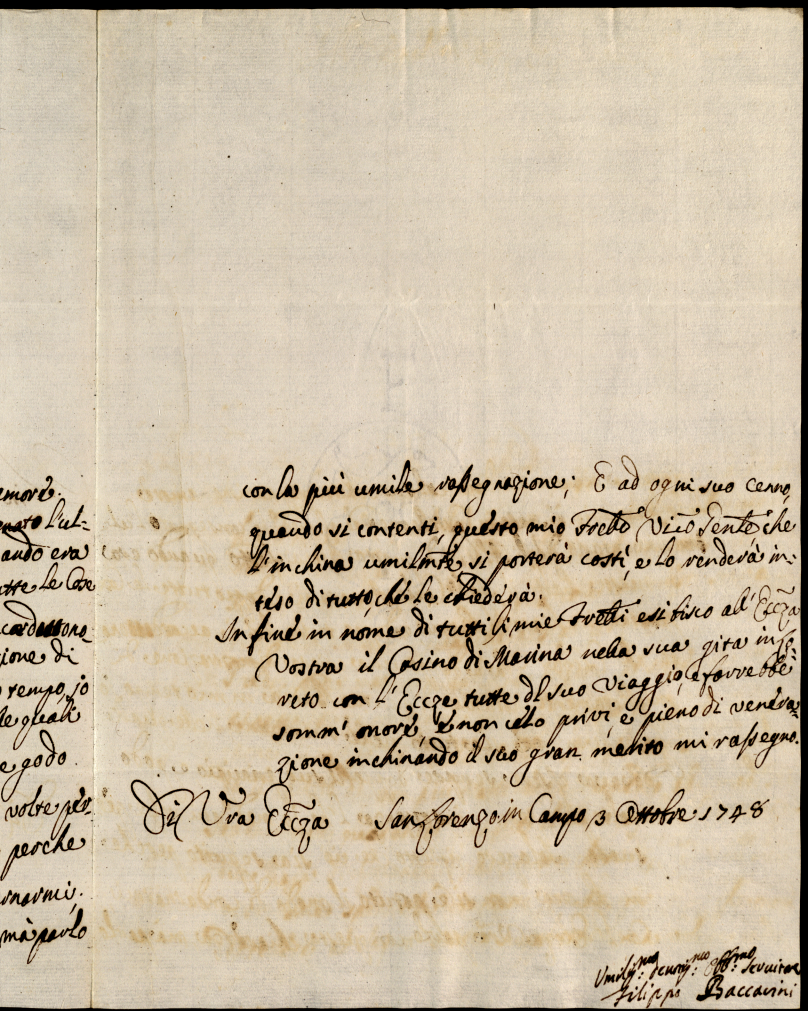 emoré.
enato l'ul-
ando era
utte le Cose
cordassono
ione di
tempo, jo
le quali
e godo
volte per-
perche
rnarmi.
mà parlo
con la più umile rassegnazione; E ad ogni suo cenno,
quando si contenti, questo mio Frello Vico Tente, che
l'inchina umilmte si porterà costì, e lo renderà in-
teso di tutto, ché le chiederà.
In finé in nome di tutti li mie Frelli esibisco all' Eccza
Vostra il Casino di Marina nella sua gita in
reto con l'Eccze tutte dl suo Viaggio, e farrebbe
somm' onoré, é non celo privi, e pieno di venéra-
zione inchinando il suo gran merito mi rassegno.
Di Vra Eccza San Lorenzo in Campo 3 Ottobre 1748
Umilismo: devotismo: Obbmo: Servitore
Filippo Baccarini